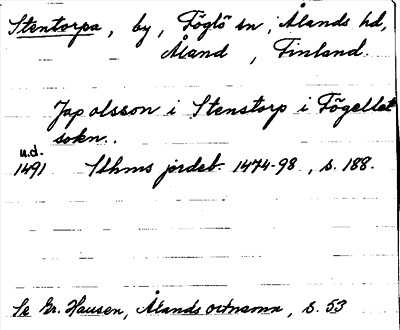 Stentorpa, by, Föglö sn, Ålands hd,
Åland, Finland.
Jap olsson i Stenstorp i Fögellet
sokn..
u.d.
1491 Sthms jordeb. 1474-98, s. 188.
Se Gr. Hausen, Ålands ortnamn, s. 53